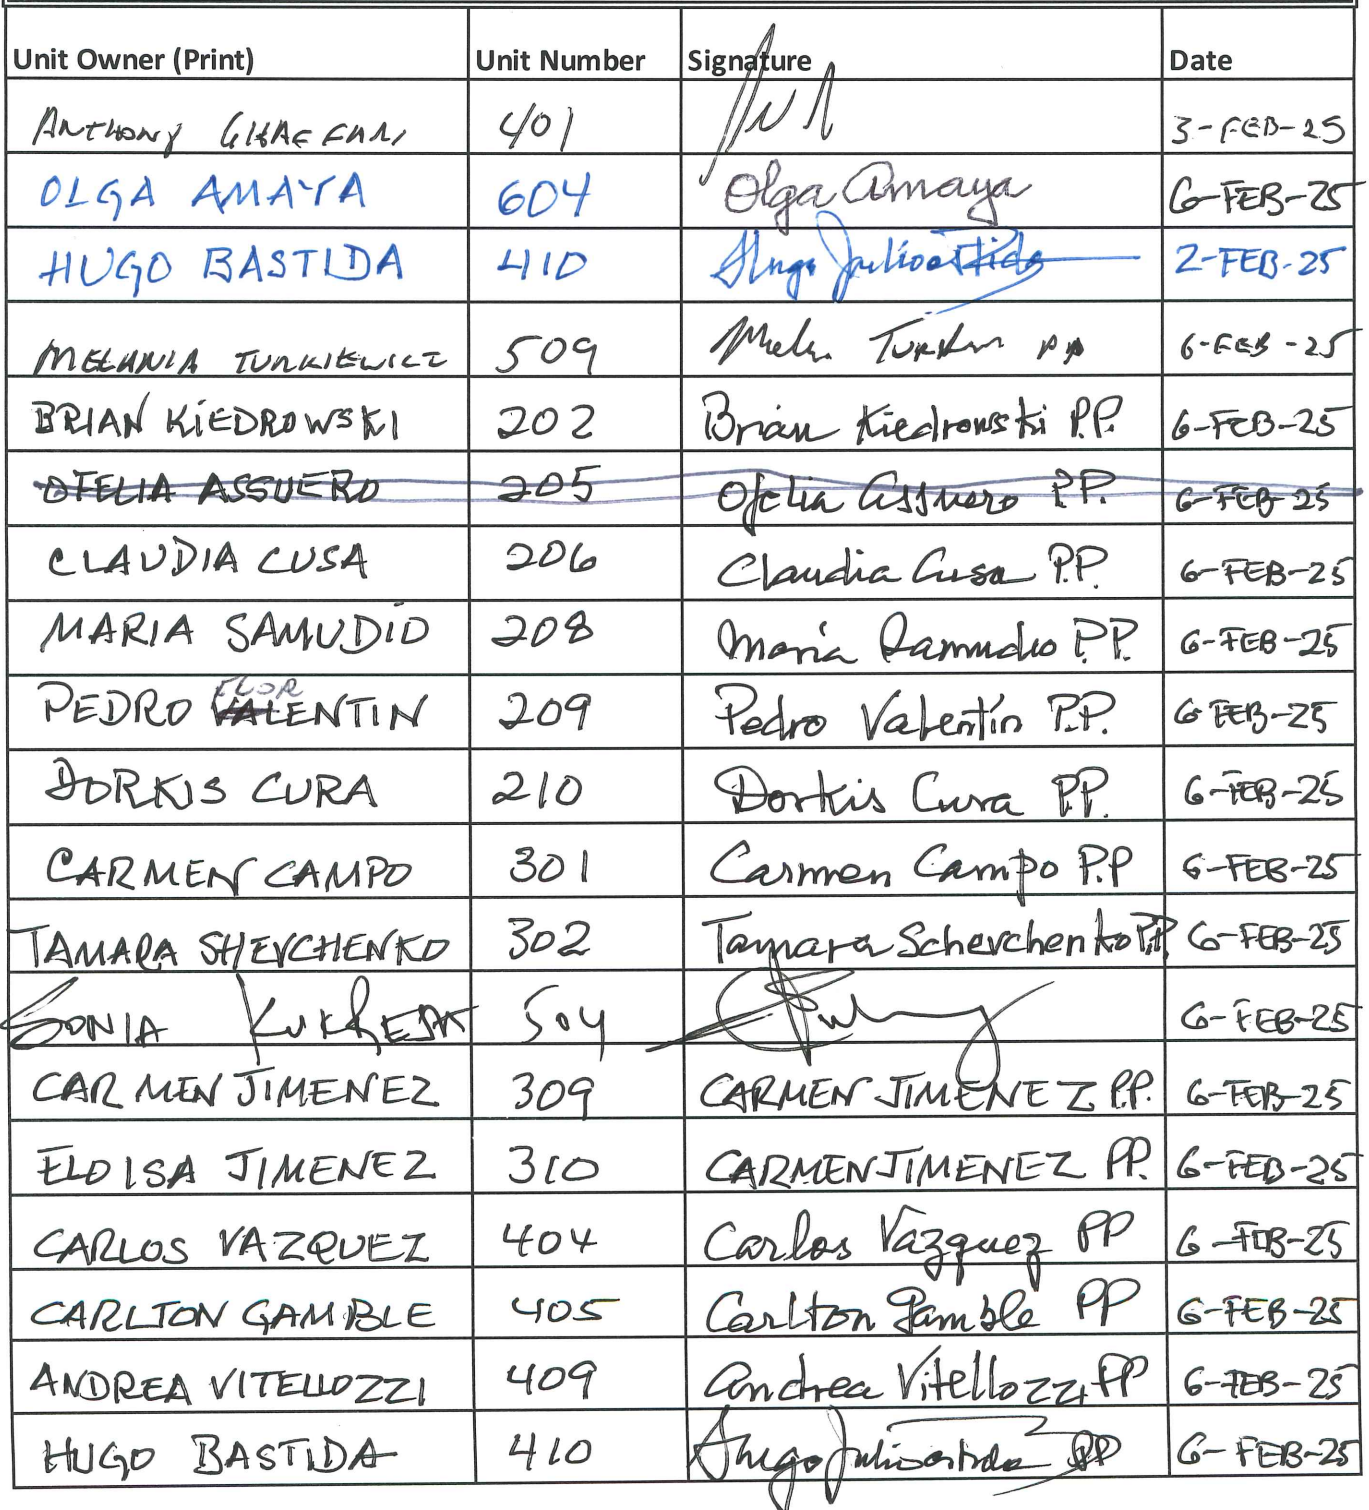 Unit Owner (Print) Unit Number Signature Date
ANTHONY 401 3-FEB-25
OLGA AMAYA 604 Olga Amaya 6-FEB-25
HUGO BASTIDA 410 Hugo Julio Bastida 2-FEB-25
MELANIA TURKIEWICZ 509 PP 6-FEB-25
BRIAN KIEDROWSKI 202 Brian Kiedrowski P.P. 6-FEB-25
OFELIA ASSUERO 205 Ofelia Assuero P.P. 6-FEB-25
CLAUDIA CUSA 206 Claudia Cusa P.P. 6-FEB-25
MARIA SAMUDIO 208 Maria Samudio P.P. 6-FEB-25
FLOR
PEDRO VALENTIN 209 Pedro Valentín P.P. 6-FEB-25
DORKIS CURA 210 Dorkis Cura P.P. 6-FEB-25
CARMEN CAMPO 301 Carmen Campo P.P 6-FEB-25
TAMARA SHEVCHENKO 302 Tamara Scherchenko P.P. 6-FEB-25
SONIA KUKREJA 504 6-FEB-25
CARMEN JIMENEZ 309 CARMEN JIMENEZ P.P. 6-FEB-25
ELOISA JIMENEZ 310 CARMEN JIMENEZ PP. 6-FEB-25
CARLOS VAZQUEZ 404 Carlos Vázquez PP 6-FEB-25
CARLTON GAMBLE 405 Carlton Gamble PP 6-FEB-25
ANDREA VITELLOZZI 409 Andrea Vitellozzi PP 6-FEB-25
HUGO BASTIDA 410 Hugo Julio Bastida PP 6-FEB-25